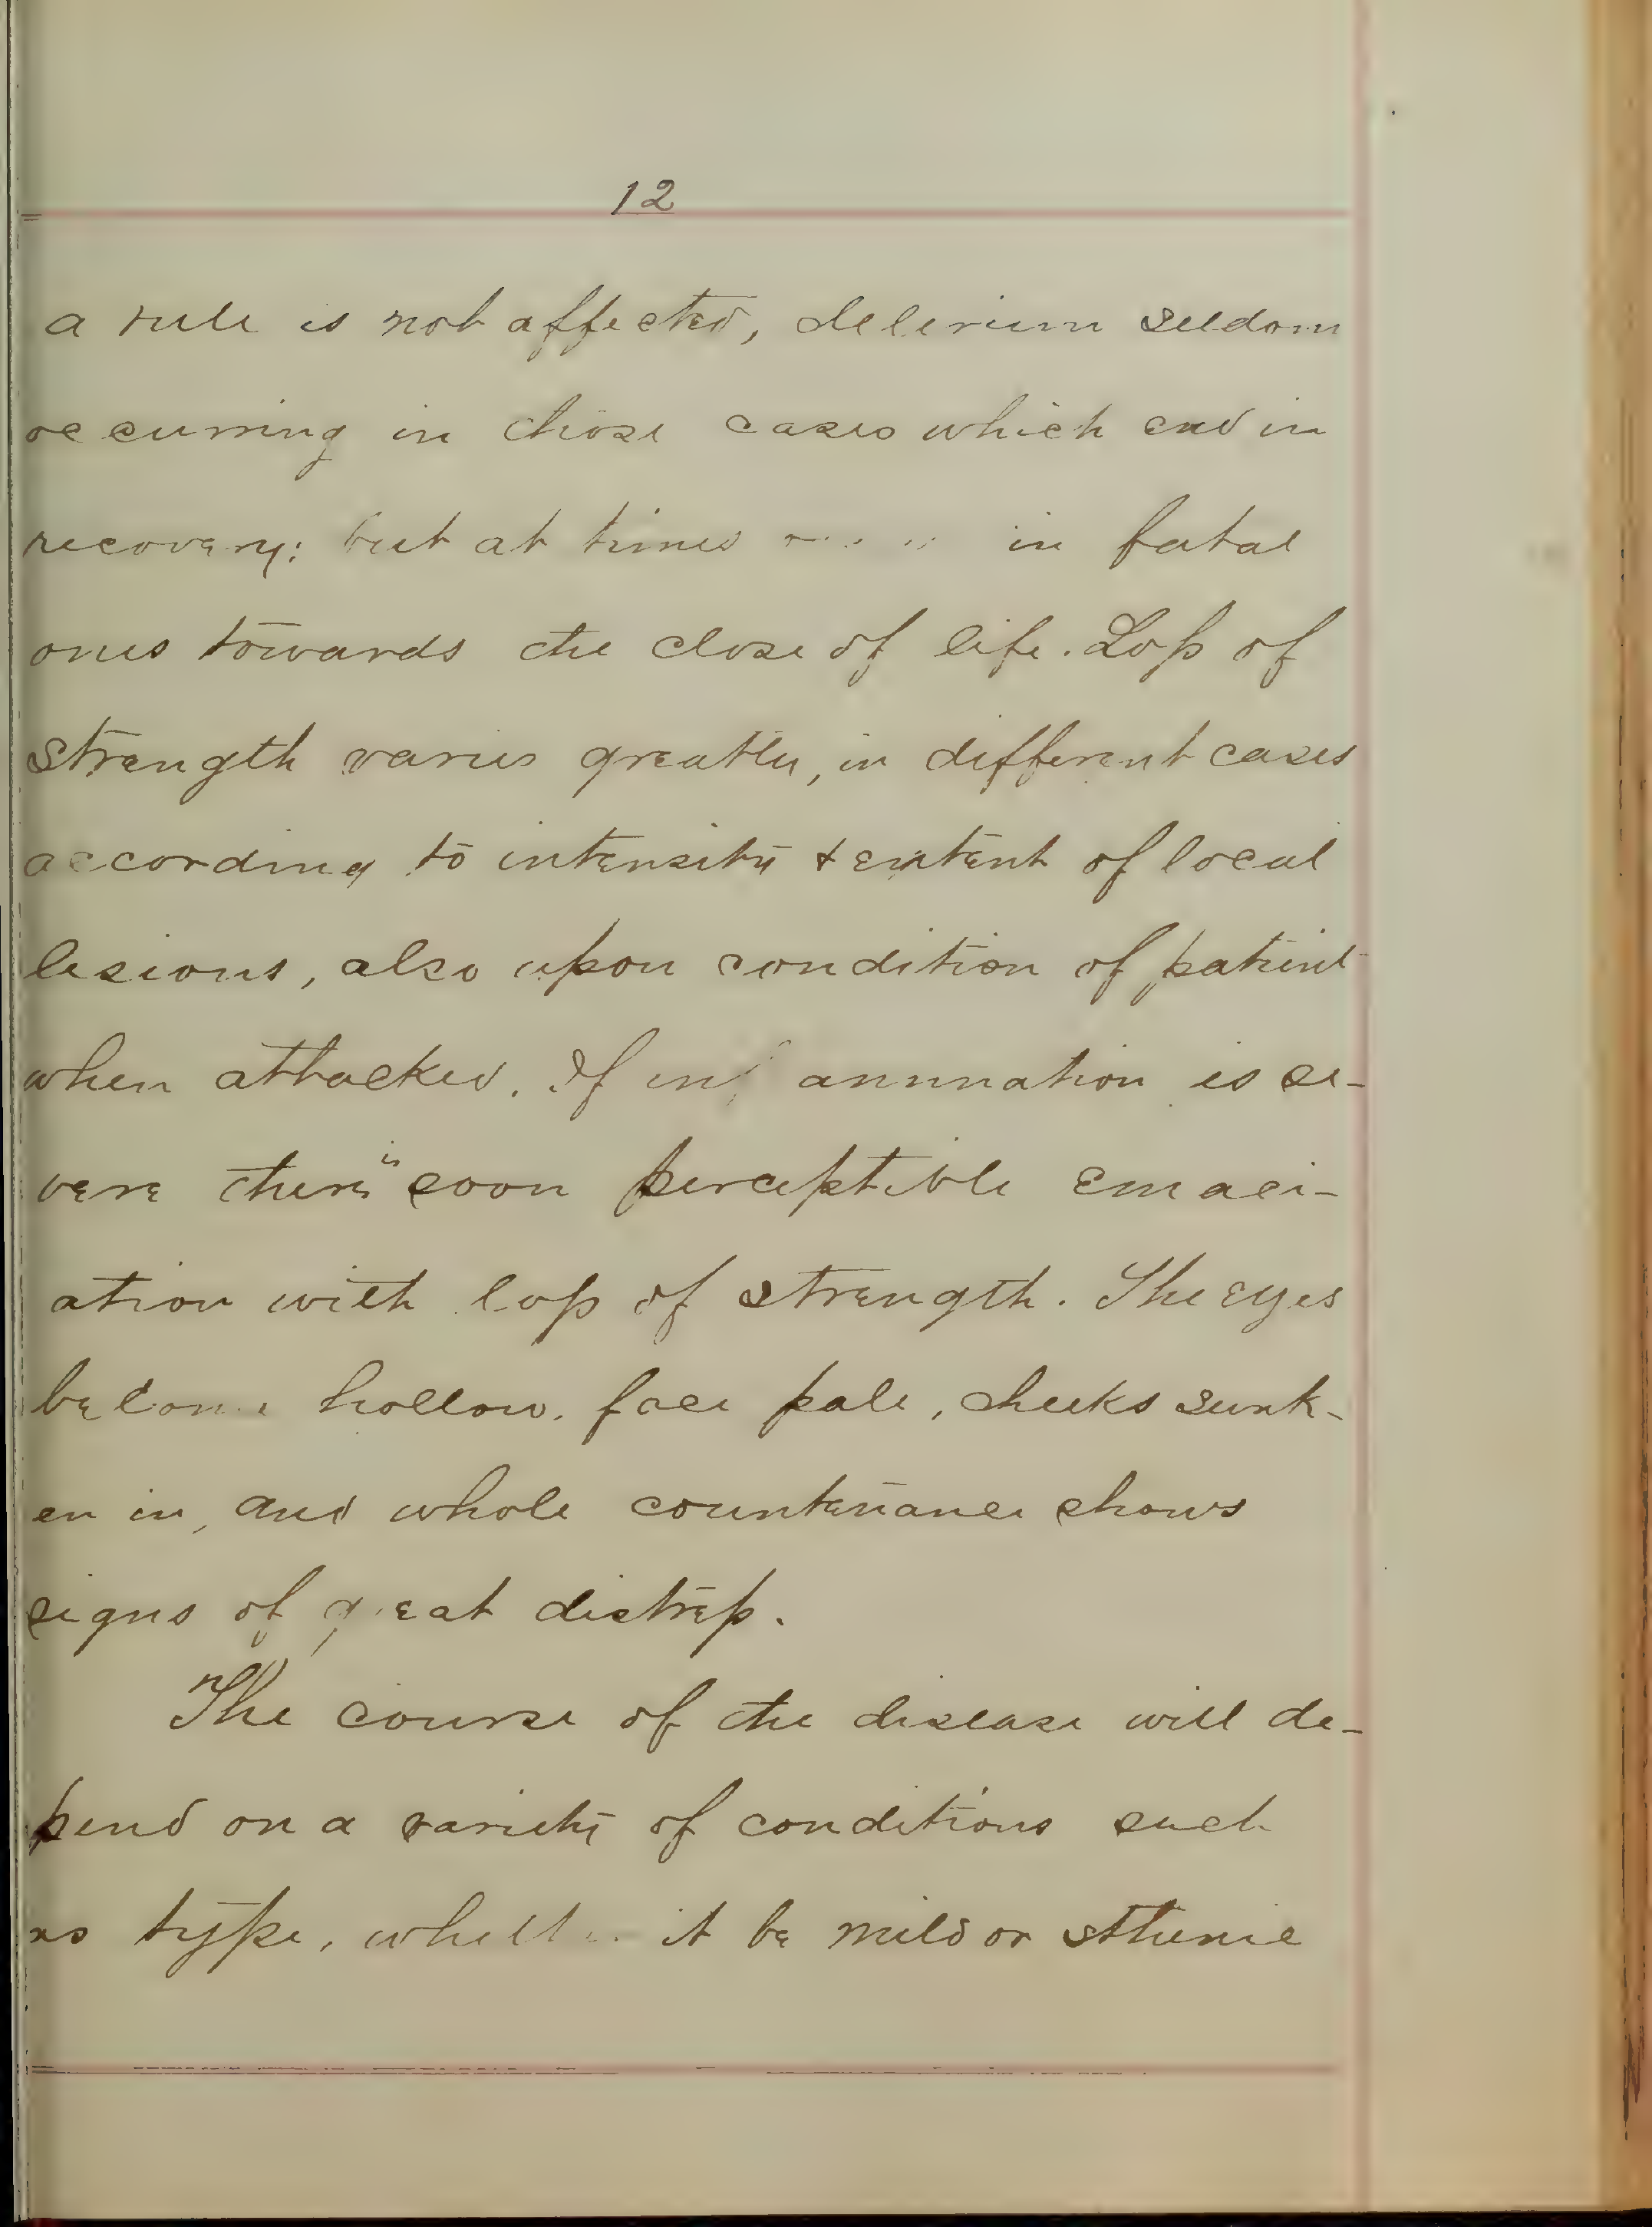 12
a rule is not affected, delerium seldom
occurring in those cases which end in
recovery: but at times in fatal
ones towards the close of life. Loss of
strength varies greatly, in different cases
according to intensity & extent of local
lesions, also upon condition of patient
when attacked. If inflammation is se-
vere there is soon perceptible emaci-
ation with loss of strength. The eyes
become hollow, face pale, cheeks sunk-
en in, and whole countenance shows
signs of great distress.
The course of the disease will de-
pend on a variety of conditions such
as type, whether it be mild or sthenic